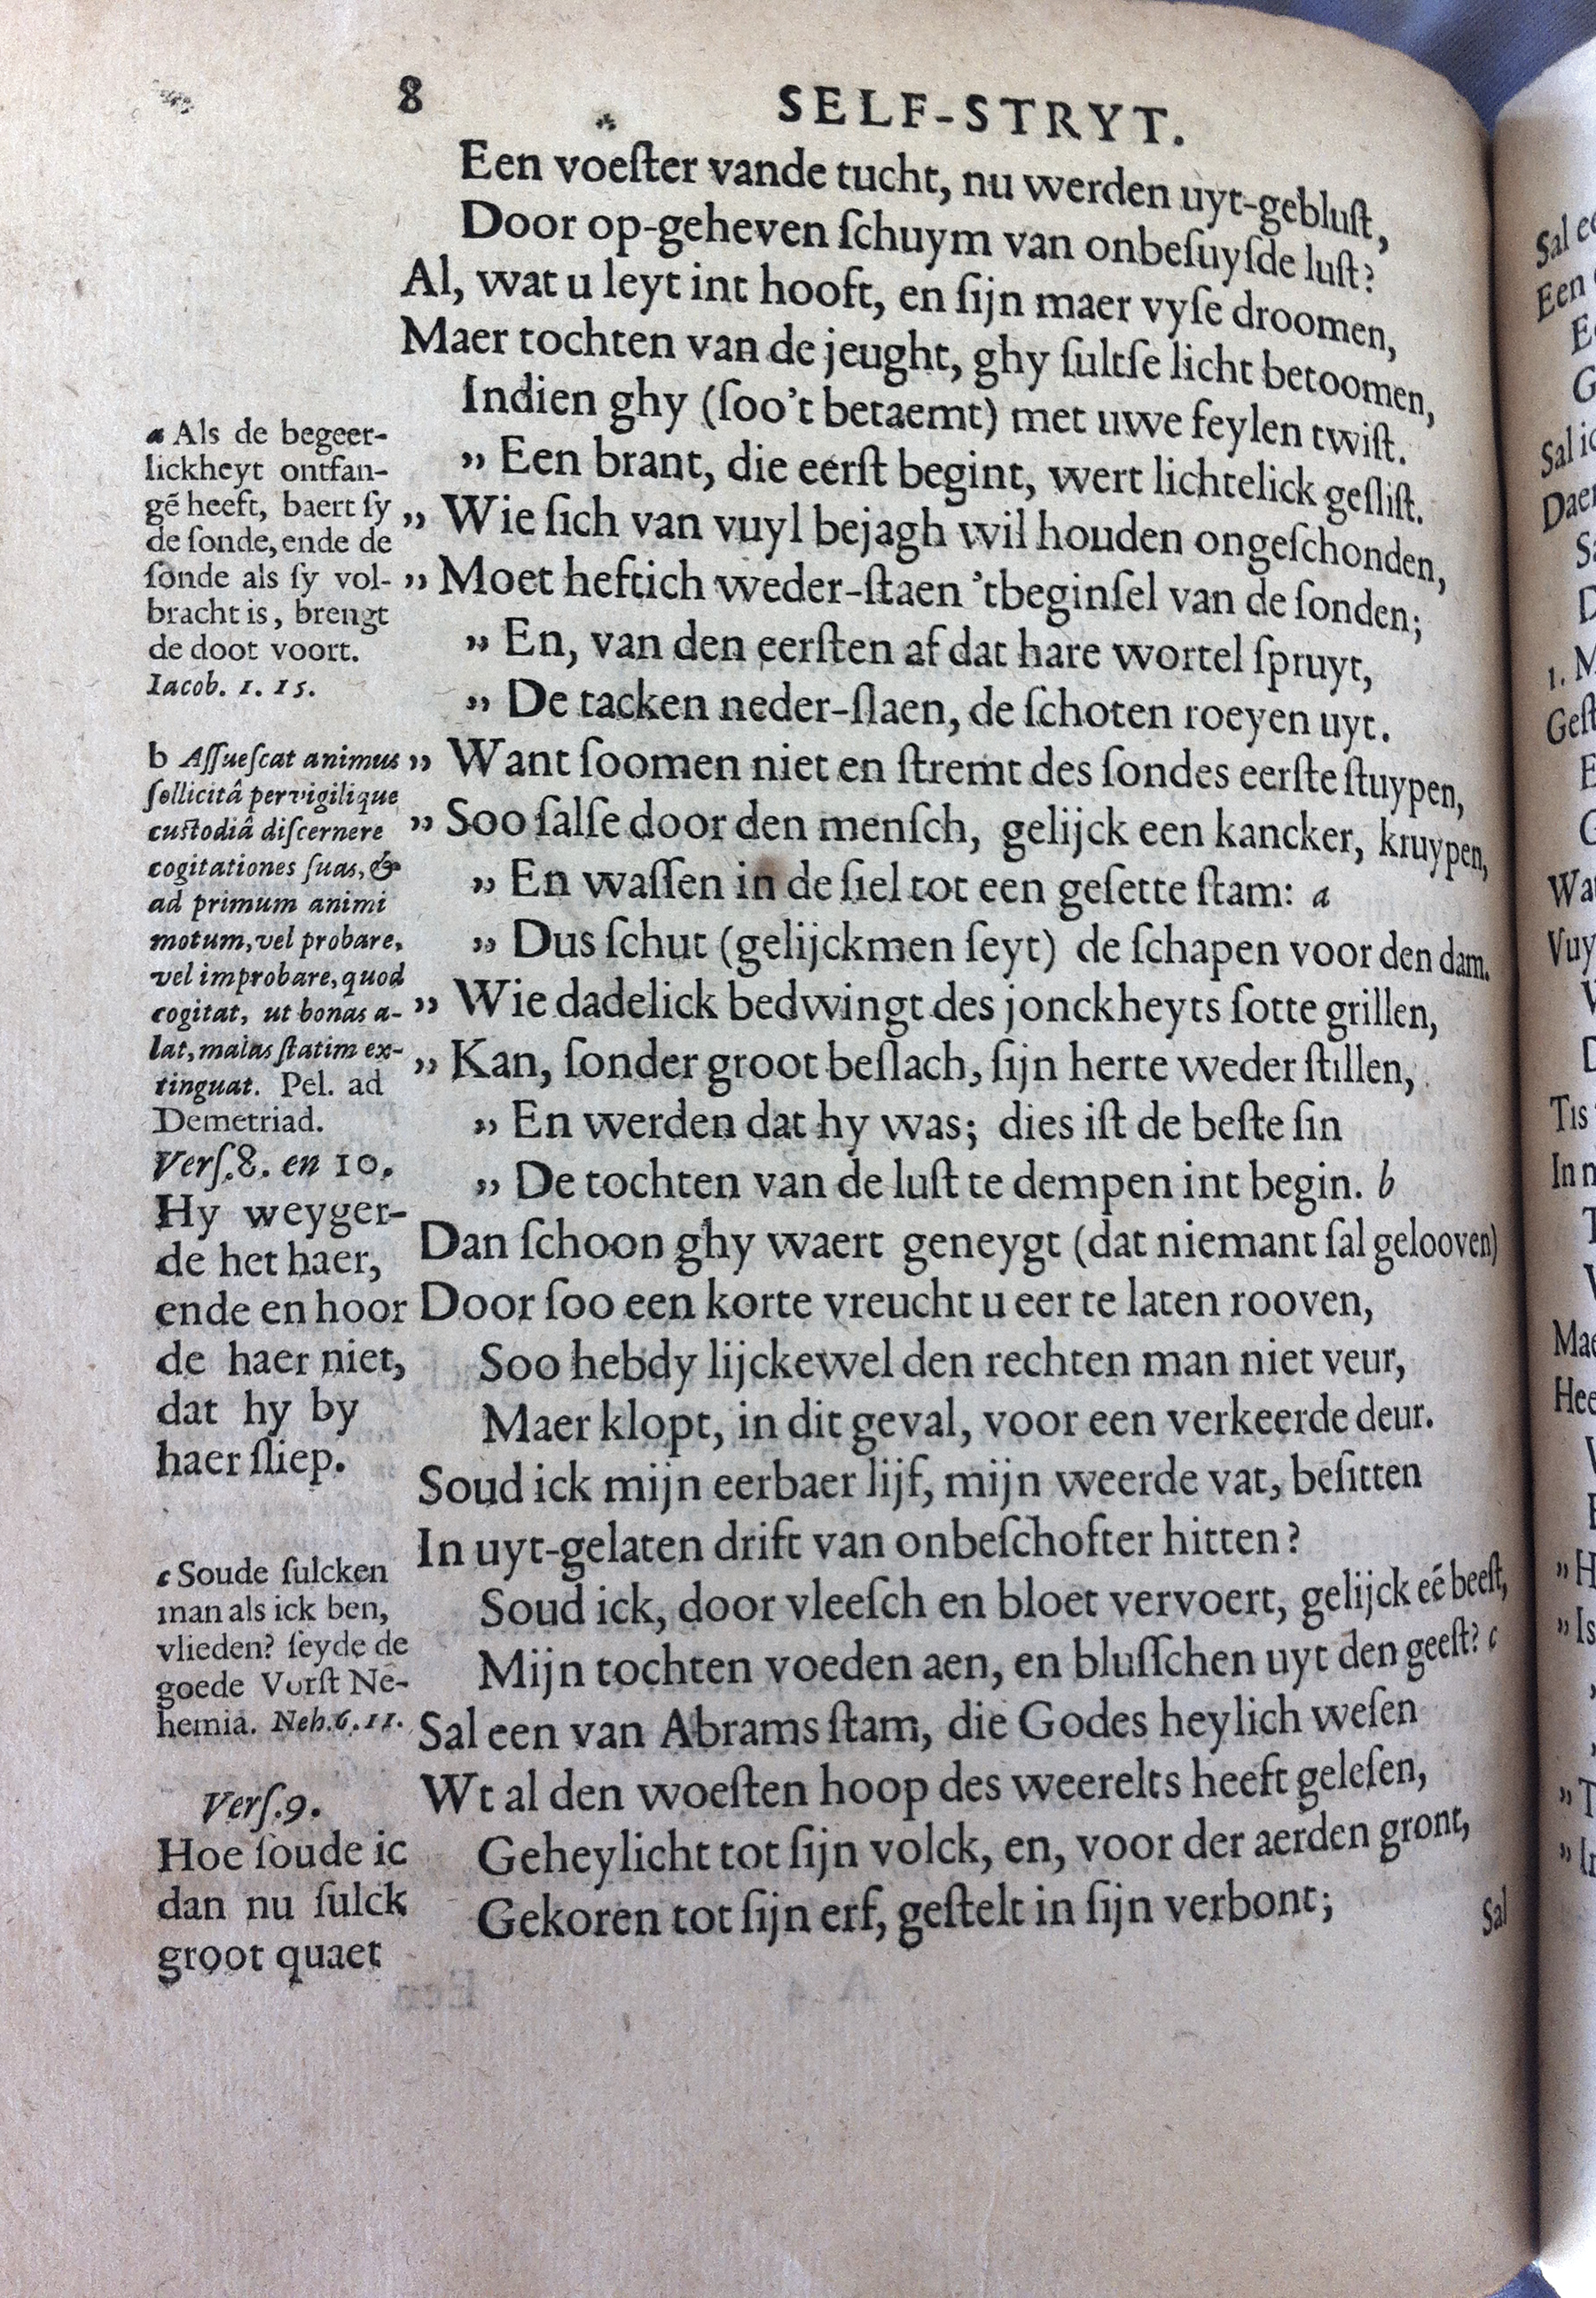 8
SELF-STRYT.
Een voeſter vande tucht, nu werden uyt-gebluſt,
Door op-geheven ſchuym van onbeſuyſde luſt?
Al, wat u leyt int hooft, en ſijn maer vyſe droomen,
Maer tochten van de jeught, ghy ſultſe licht betoomen,
Indien ghy (ſoo't betaemt) met uwe feylen twiſt.
„ Een brant, die eerſt begint, wert lichtelick geſliſt.
„ Wie ſich van vuyl bejagh wil houden ongeſchonden,
„ Moet heftich weder-ſtaen 'tbeginſel van de ſonden;
„ En, van den eerſten af dat hare wortel ſpruyt,
„ De tacken neder-ſlaen, de ſchoten roeyen uyt.
„ Want ſoomen niet en ſtremt des ſondes eerſte ſtuypen,
„ Soo ſalſe door den menſch, gelijck een kancker, kruypen,
„ En waſſen in de ſiel tot een geſette ſtam: a
„ Dus ſchut (gelijckmen ſeyt) de ſchapen voor den dam.
„ Wie dadelick bedwingt des jonckheyts ſotte grillen,
„ Kan, ſonder groot beſlach, ſijn herte weder ſtillen,
„ En werden dat hy was; dies iſt de beſte ſin
„ De tochten van de luſt te dempen int begin. b
Dan ſchoon ghy waert geneygt (dat niemant ſal gelooven)
Door ſoo een korte vreucht u eer te laten rooven,
Soo hebdy lijckewel den rechten man niet veur,
Maer klopt, in dit geval, voor een verkeerde deur.
Soud ick mijn eerbaer lijf, mijn weerde vat, beſitten
In uyt-gelaten drift van onbeſchofter hitten?
Soud ick, door vleeſch en bloet vervoert, gelijck eé beeſt,
Mijn tochten voeden aen, en bluſſchen uyt den geeſt? c
Sal een van Abrams ſtam, die Godes heylich weſen
Wt al den woeſten hoop des weerelts heeft geleſen,
Geheylicht tot ſijn volck, en, voor der aerden gront,
Gekoren tot ſijn erf, geſtelt in ſijn verbont;
Sal
a Als de begeer-
lickheyt ontfan-
gē heeft, baert ſy
de ſonde, ende de
ſonde als ſy vol-
bracht is, brengt
de doot voort.
Iacob. 1. 15.
b Aſſueſcat animus
ſollicitâ pervigilique
cuſtodiâ diſcernere
cogitationes ſuas, &
ad primum animi
motum, vel probare,
vel improbare, quod
cogitat, ut bonas a-
lat, malas ſtatim ex-
tinguat. Pel. ad
Demetriad.
Verſ. 8. en 10.
Hy weyger-
de het haer,
ende en hoor
de haer niet,
dat hy by
haer ſliep.
c Soude ſulcken
man als ick ben,
vlieden? ſeyde de
goede Vorſt Ne-
hemia. Neh. 6. 11.
Verſ. 9.
Hoe ſoude ic
dan nu ſulck
groot quaet